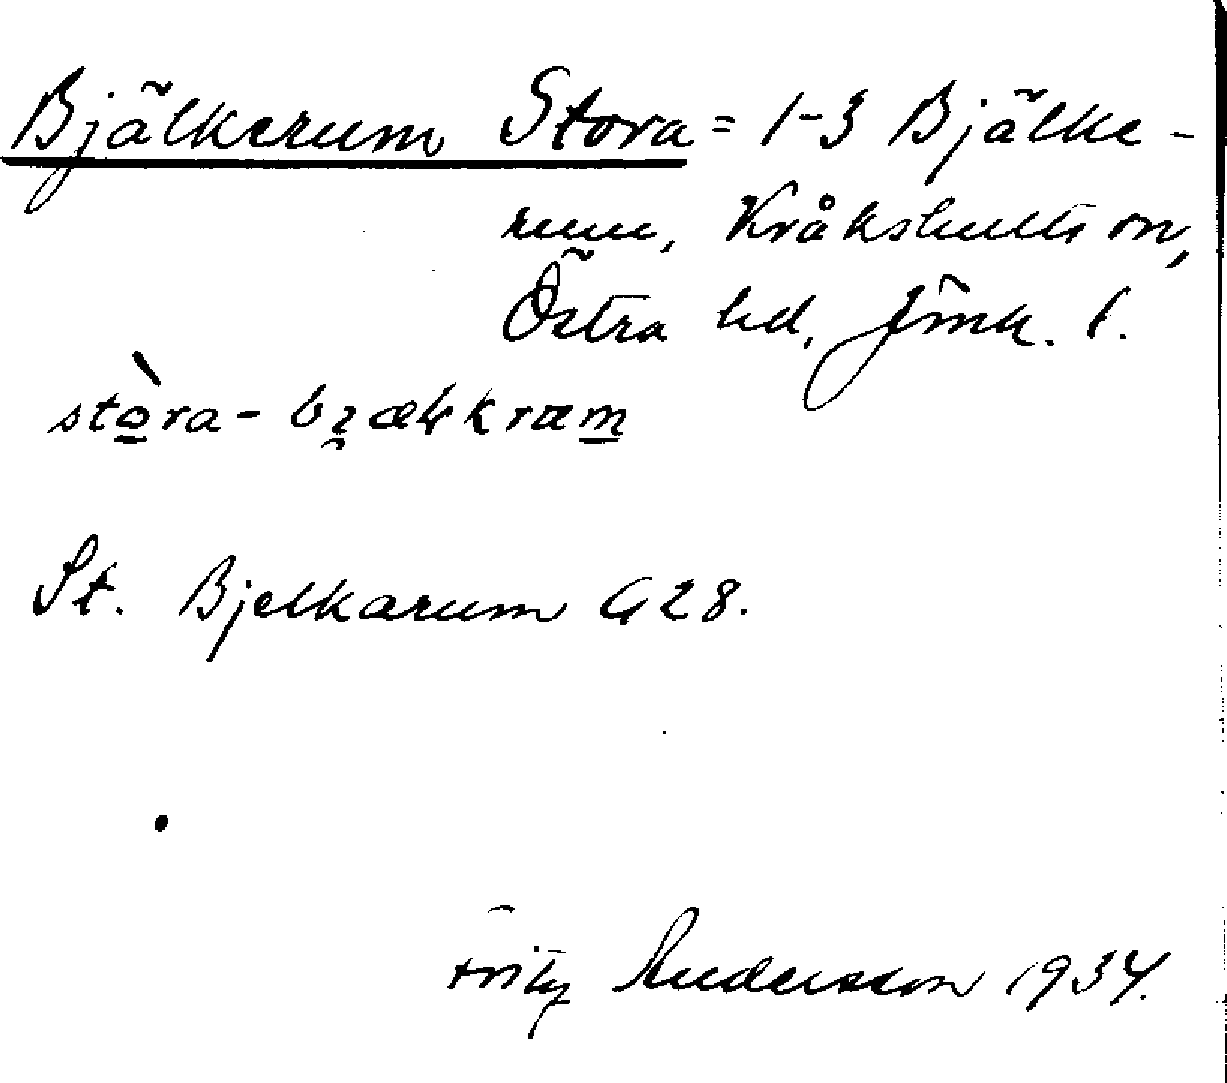 Bjälkerum Stora = 1-3 Bjälke-
rum, Kråkshults sn,
Östra hd, Jönk. l.
stò̠ra-
St. Bjelkarum G 28.
Fritz Andersson 1934.